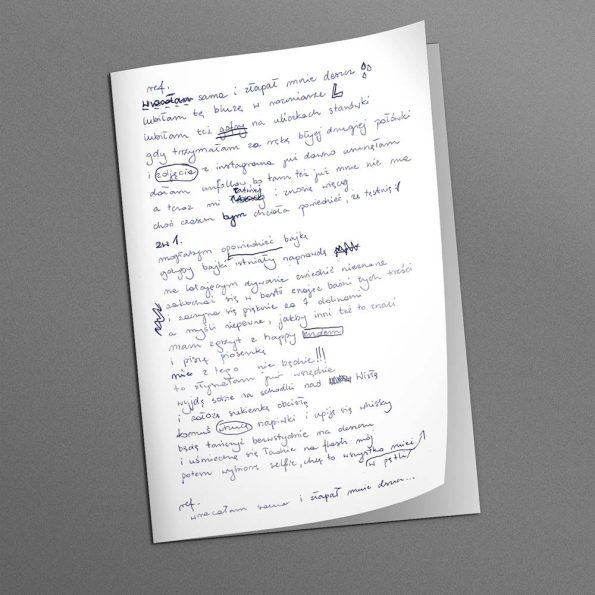 ref.
wracałam sama i złapał mnie deszcz
lubiłam tę bluzę w rozmiarze L
lubiłam też na uliczkach stanówki
gdy trzymałam za rękę byłej drugiej połówki
i zdjęcia z instagrama już dawno usunęłam
dałam unfollow, bo tam też już mnie nie ma
a teraz mi łatwiej i znoszę więcej
choć czasem bym chciała powiedzieć, że tęsknię
zw 1.
mogłabym opowiedzieć bajkę
gdyby bajki istniały naprawdę
na latającym dywanie zwiedzić nieznane
zakochać się w bestii znając baśni tych treści
i zaczyna się pięknie za 7 dolinami
a myśli niepewne, jakby inni też to znali
mam zgrzyt z happy endem
i piszę piosenkę
nic z tego nie będzie!!!
to słyszałam już wszędzie
wyjdę sobie na schodki nad Wisłę
i założę sukienkę obcisłą
komuś wrzucę napiwki i upiję się whisky
będę tańczyć bezwstydnie na deskach
i uśmiechnę się ładnie na flash mój
potem wybiorę selfie, chcę to wszystko mieć
(w pętli)
ref.
wracałam sama i złapał mnie deszcz...